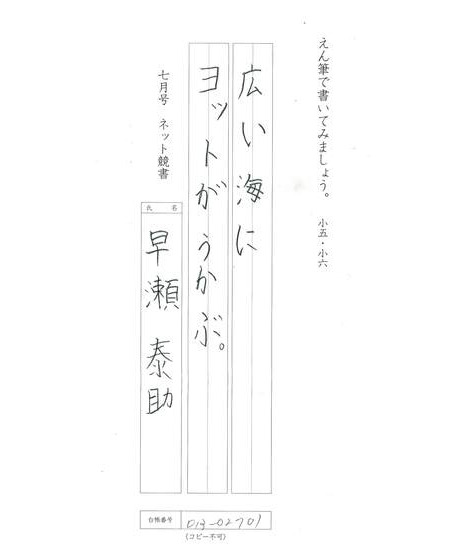 えん筆で書いてみましょう。 小五・小六
広い海に
ヨットがうかぶ。
七月号 ネット競書
氏名
早瀬 泰助
台帳番号 013-02701
(コピー不可)